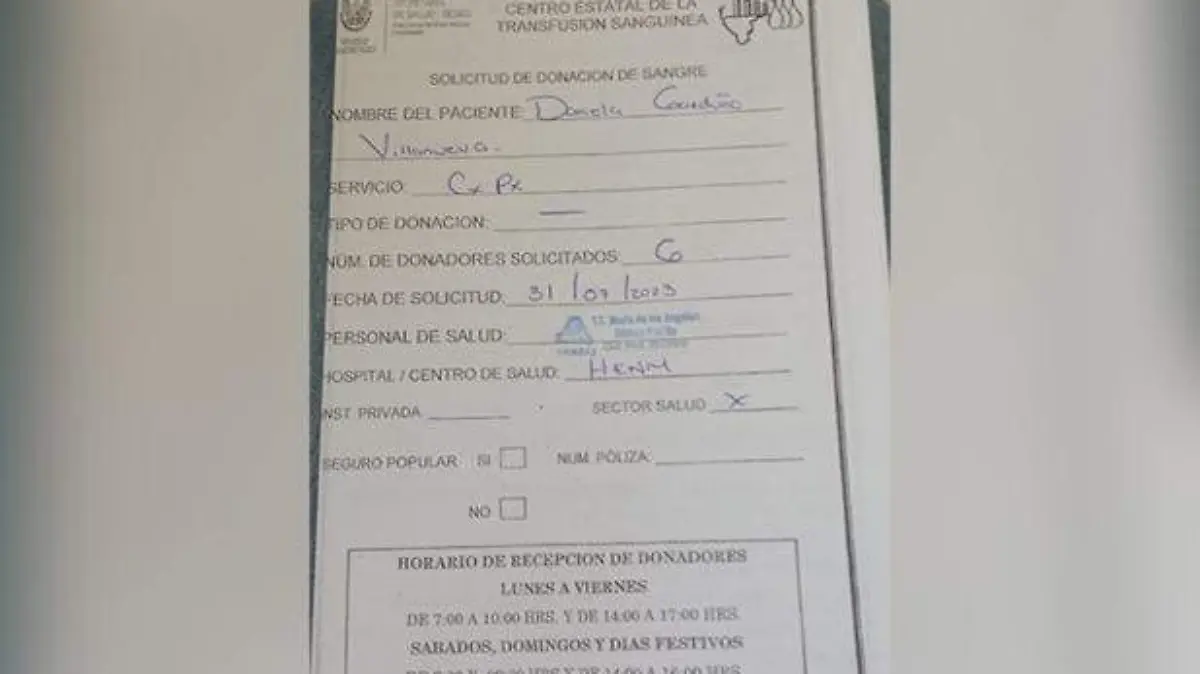 DE SALUD
CENTRO ESTATAL DE LA
TRANSFUSION SANGUINEA
SOLICITUD DE DONACION DE SANGRE
NOMBRE DEL PACIENTE: Daniela
Villanueva.
SERVICIO: Cx Px
TIPO DE DONACION: —
NUM. DE DONADORES SOLICITADOS: 6
FECHA DE SOLICITUD: 31/07/2023
PERSONAL DE SALUD:
HOSPITAL / CENTRO DE SALUD: HENM
INST PRIVADA SECTOR SALUD X
SEGURO POPULAR SI NUM. POLIZA:
NO
HORARIO DE RECEPCION DE DONADORES
LUNES A VIERNES
DE 7:00 A 10:00 HRS. Y DE 14:00 A 17:00 HRS.
SABADOS, DOMINGOS Y DIAS FESTIVOS
HRS Y DE 14:00 A 16:00 HRS